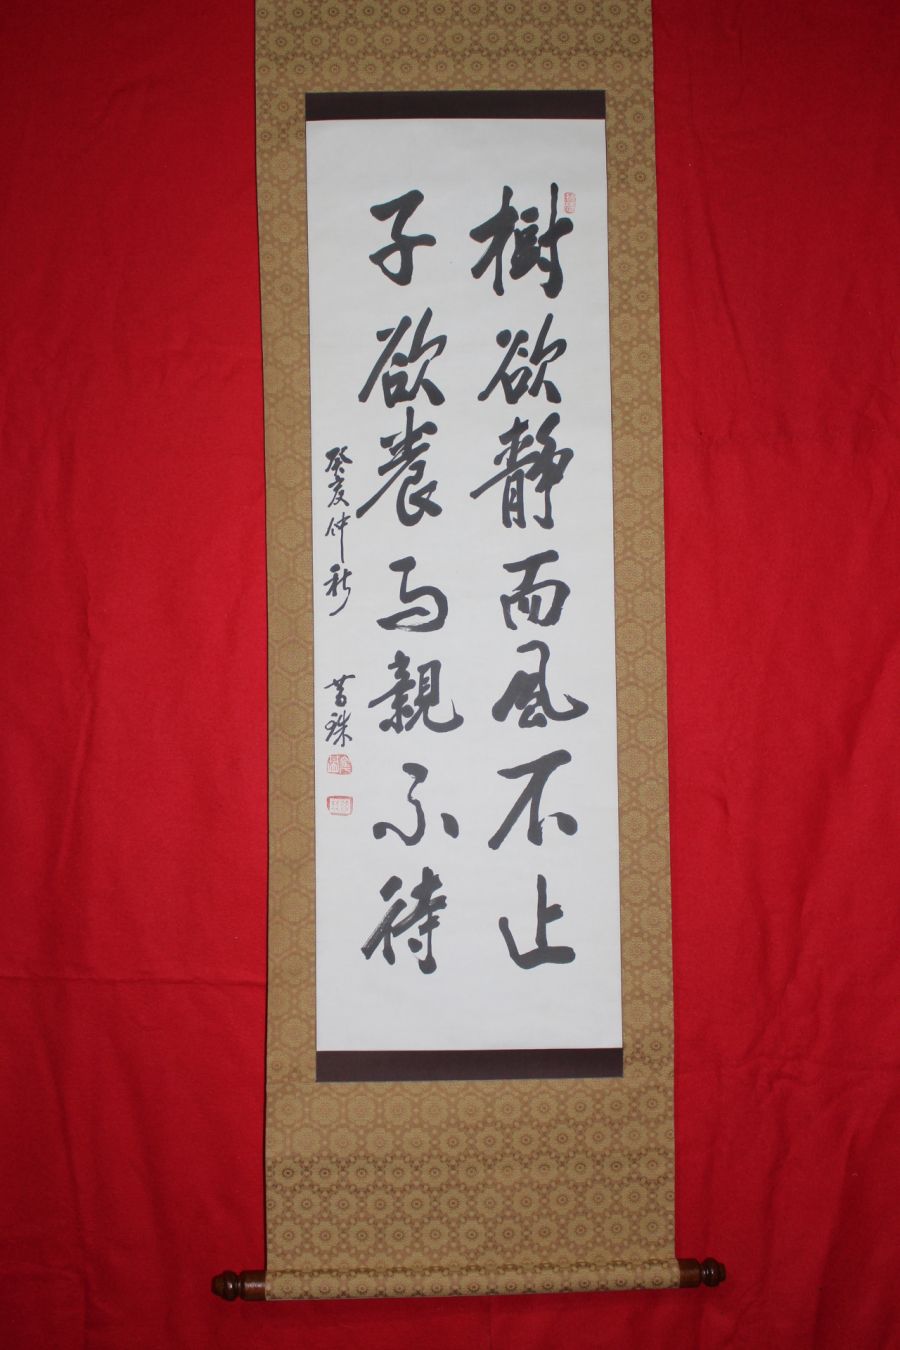 樹欲靜而風不止
子欲養而親不待
癸亥仲秋